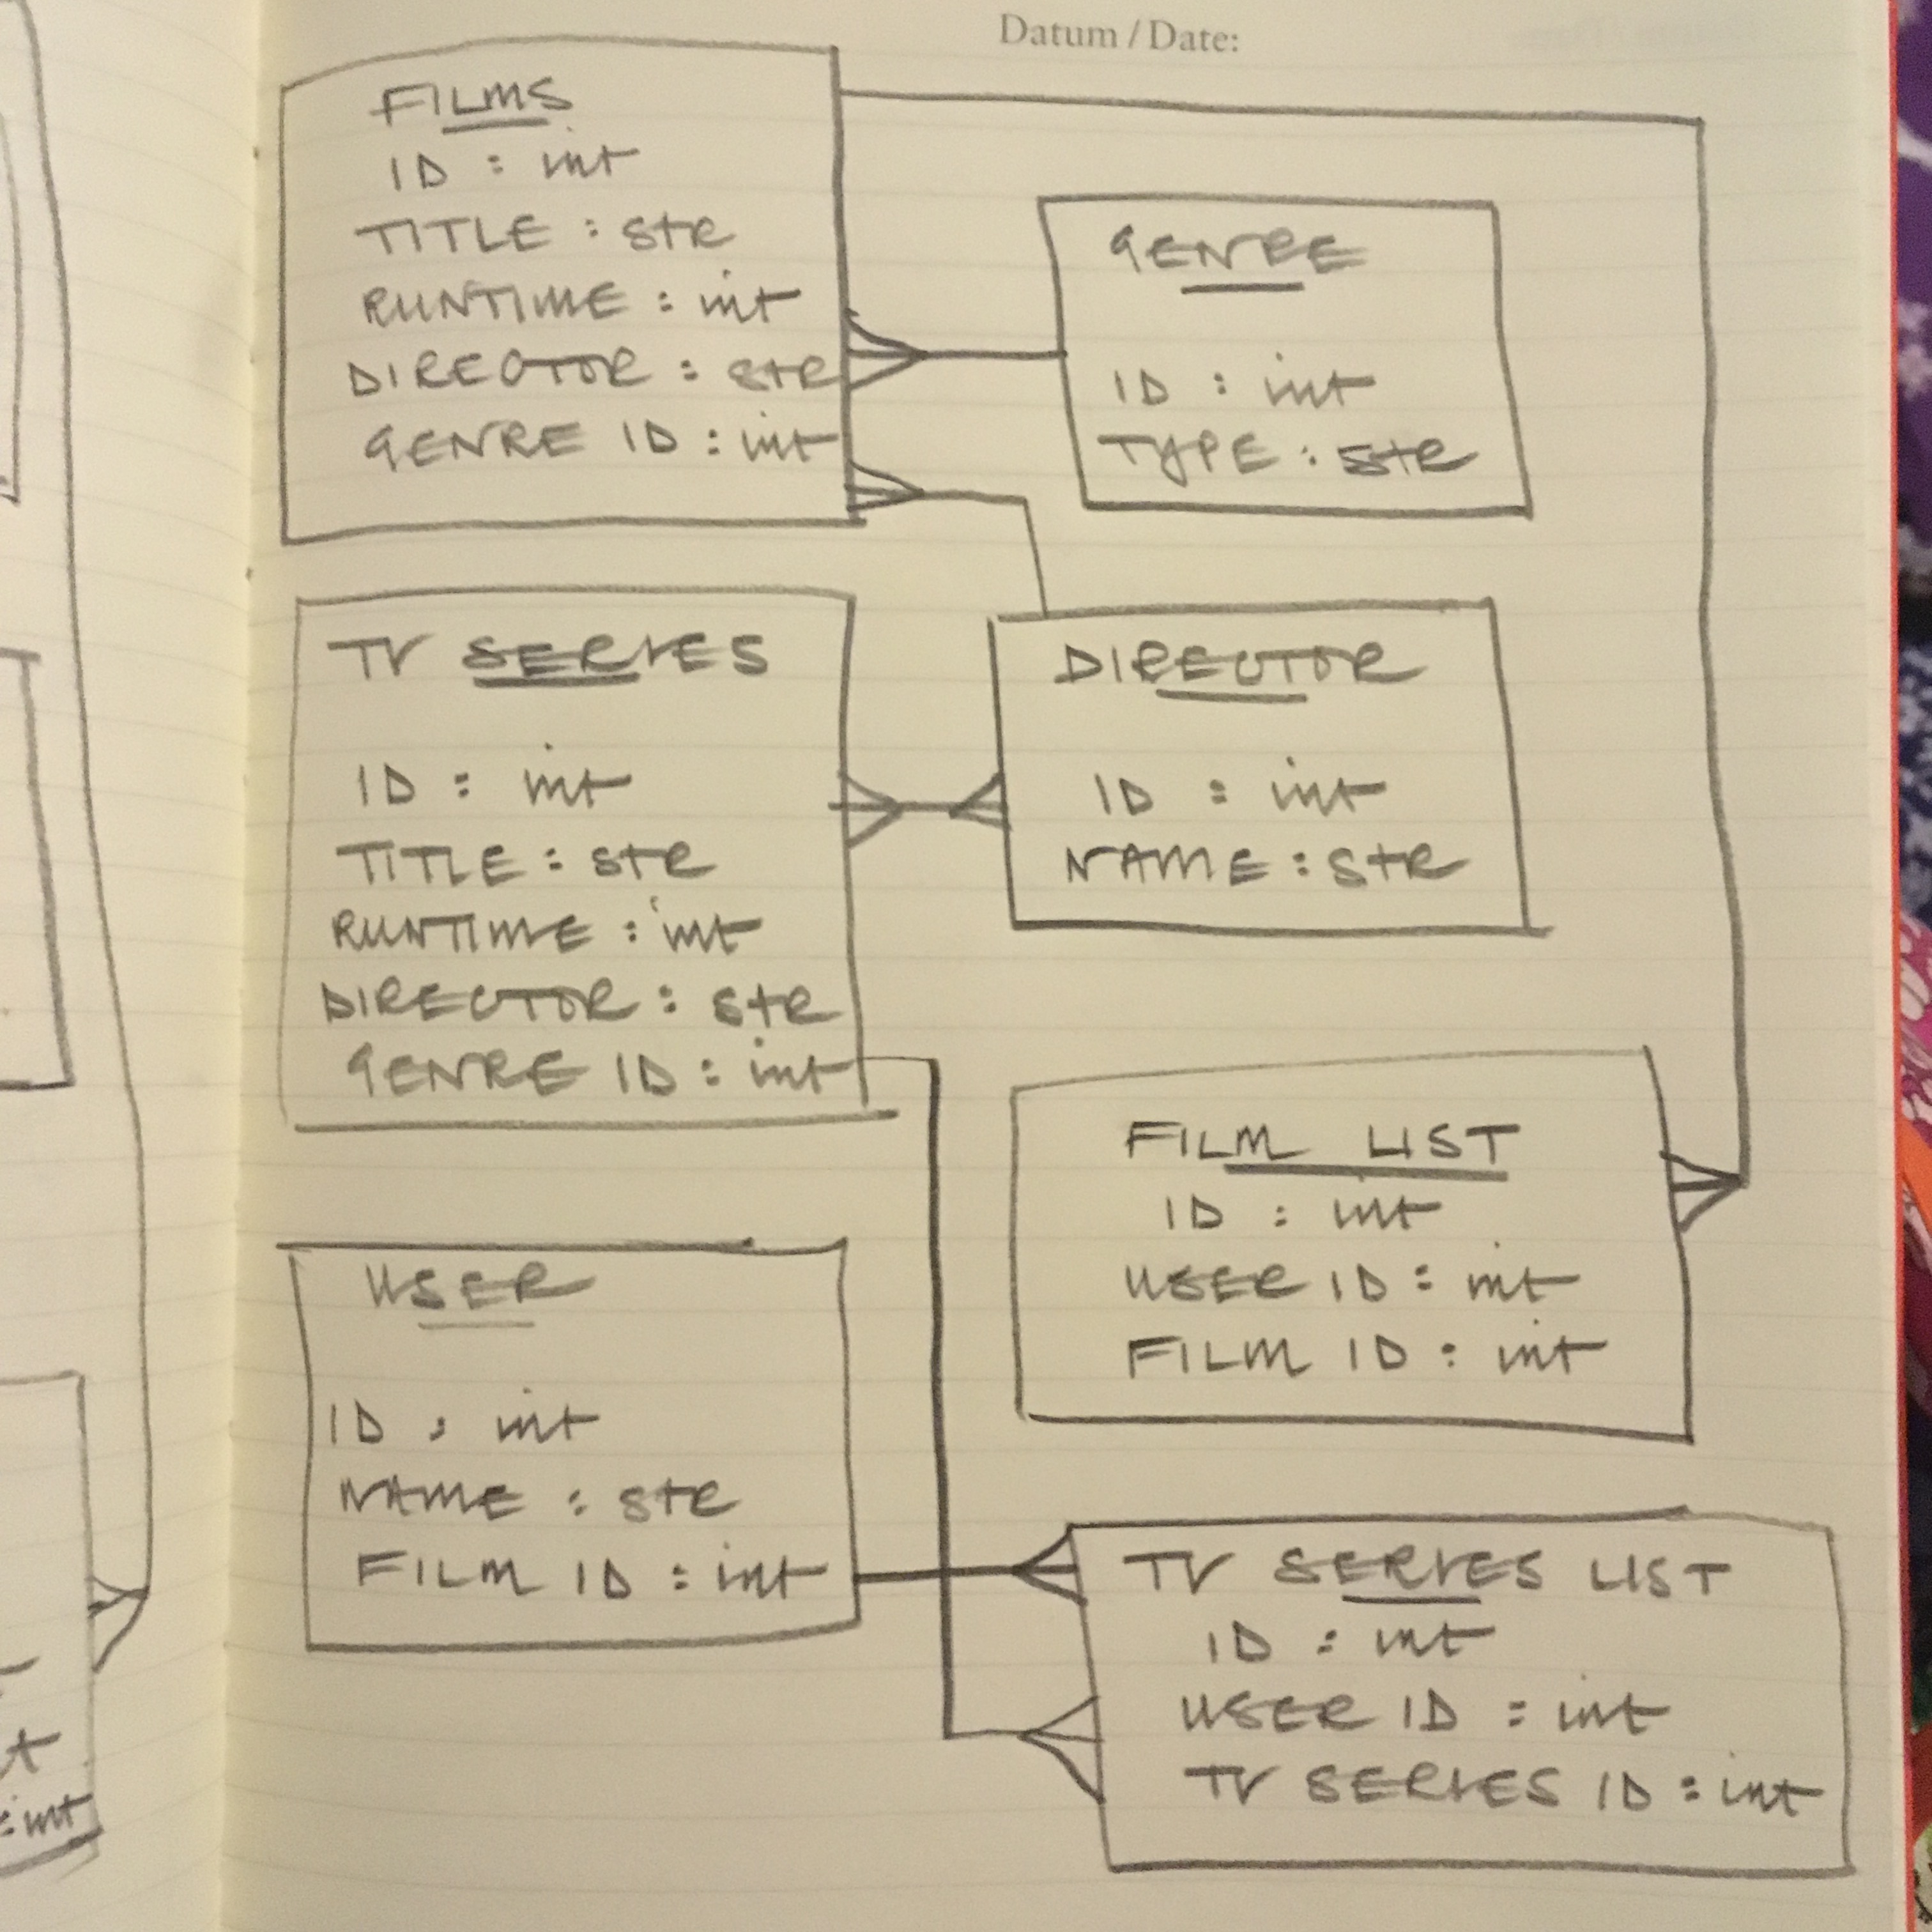 Datum / Date:
FILMS
ID : int
TITLE : str
RUNTIME : int
DIRECTOR : str
GENRE ID : int
GENRE
ID : int
TYPE : str
TV SERIES
ID : int
TITLE : str
RUNTIME : int
DIRECTOR : str
GENRE ID : int
DIRECTOR
ID : int
NAME : str
FILM LIST
ID : int
USER ID : int
FILM ID : int
USER
ID : int
NAME : str
FILM ID : int
TV SERIES LIST
ID : int
USER ID : int
TV SERIES ID : int
: int